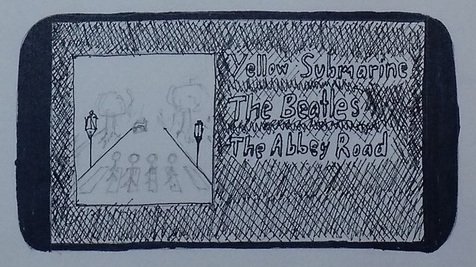 Yellow Submarine
The Beatles
The Abbey Road